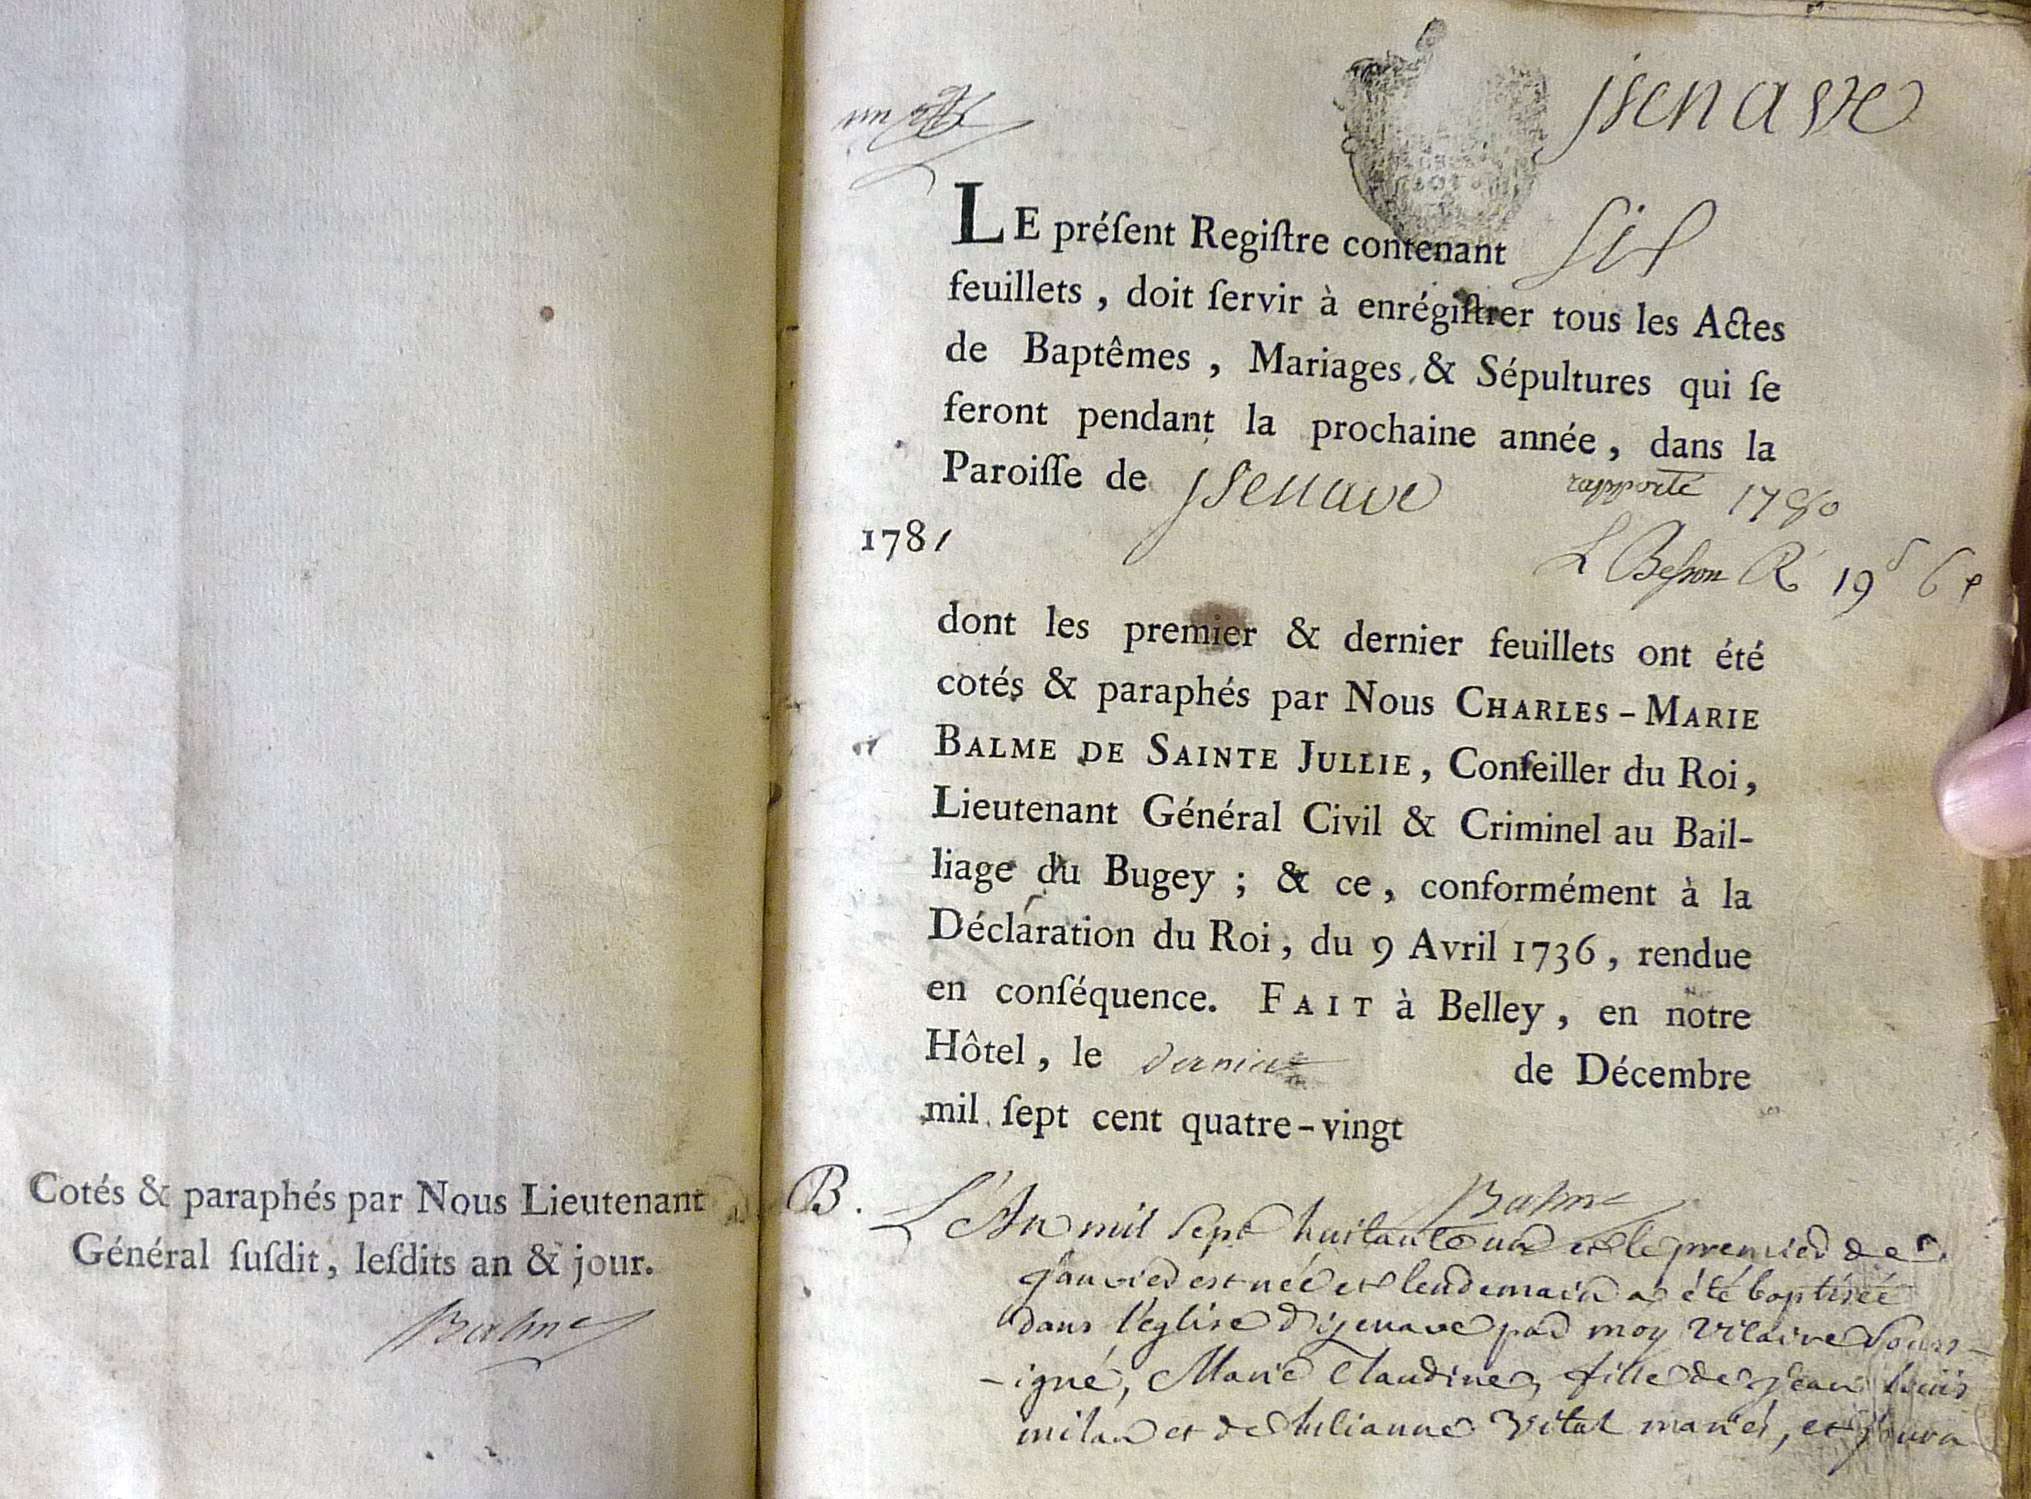 Cotés & paraphés par Nous Lieutenant
Général ſuſdit, leſdits an & jour.
Balme
jsenave
LE préſent Regiſtre contenant six
feuillets, doit ſervir à enrégiſtrer tous les Actes
de Baptêmes, Mariages & Sépultures qui ſe
feront pendant la prochaine année, dans la
Paroiſſe de jsenave
rapporté 1780
1781
L Besson R 19
dont les premier & dernier feuillets ont été
cotés & paraphés par Nous CHARLES-MARIE
BALME DE SAINTE JULLIE, Conſeiller du Roi,
Lieutenant Général Civil & Criminel au Bail-
liage du Bugey ; & ce, conformément à la
Déclaration du Roi, du 9 Avril 1736, rendue
en conſéquence. FAIT à Belley, en notre
Hôtel, le dernier de Décembre
mil ſept cent quatre-vingt
Balme
B.
L'An mil sept huitante un et le premier de
janvier est née et lendemain a été baptisée
dans l'église d'isenave par moy vicaire sous-
-igné, Marie Claudine, fille de jean louis
milan et de julianne Vital mariés, et